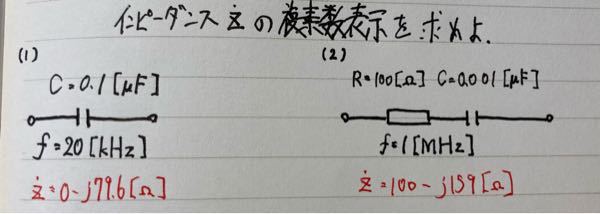 インピーダンス ż の複素数表示を求めよ.
(1)
C=0.1[μF]
f=20[kHz]
ż=0-j79.6[Ω]
(2)
R=100[Ω] C=0.001[μF]
f=1[MHz]
ż=100-j159[Ω]